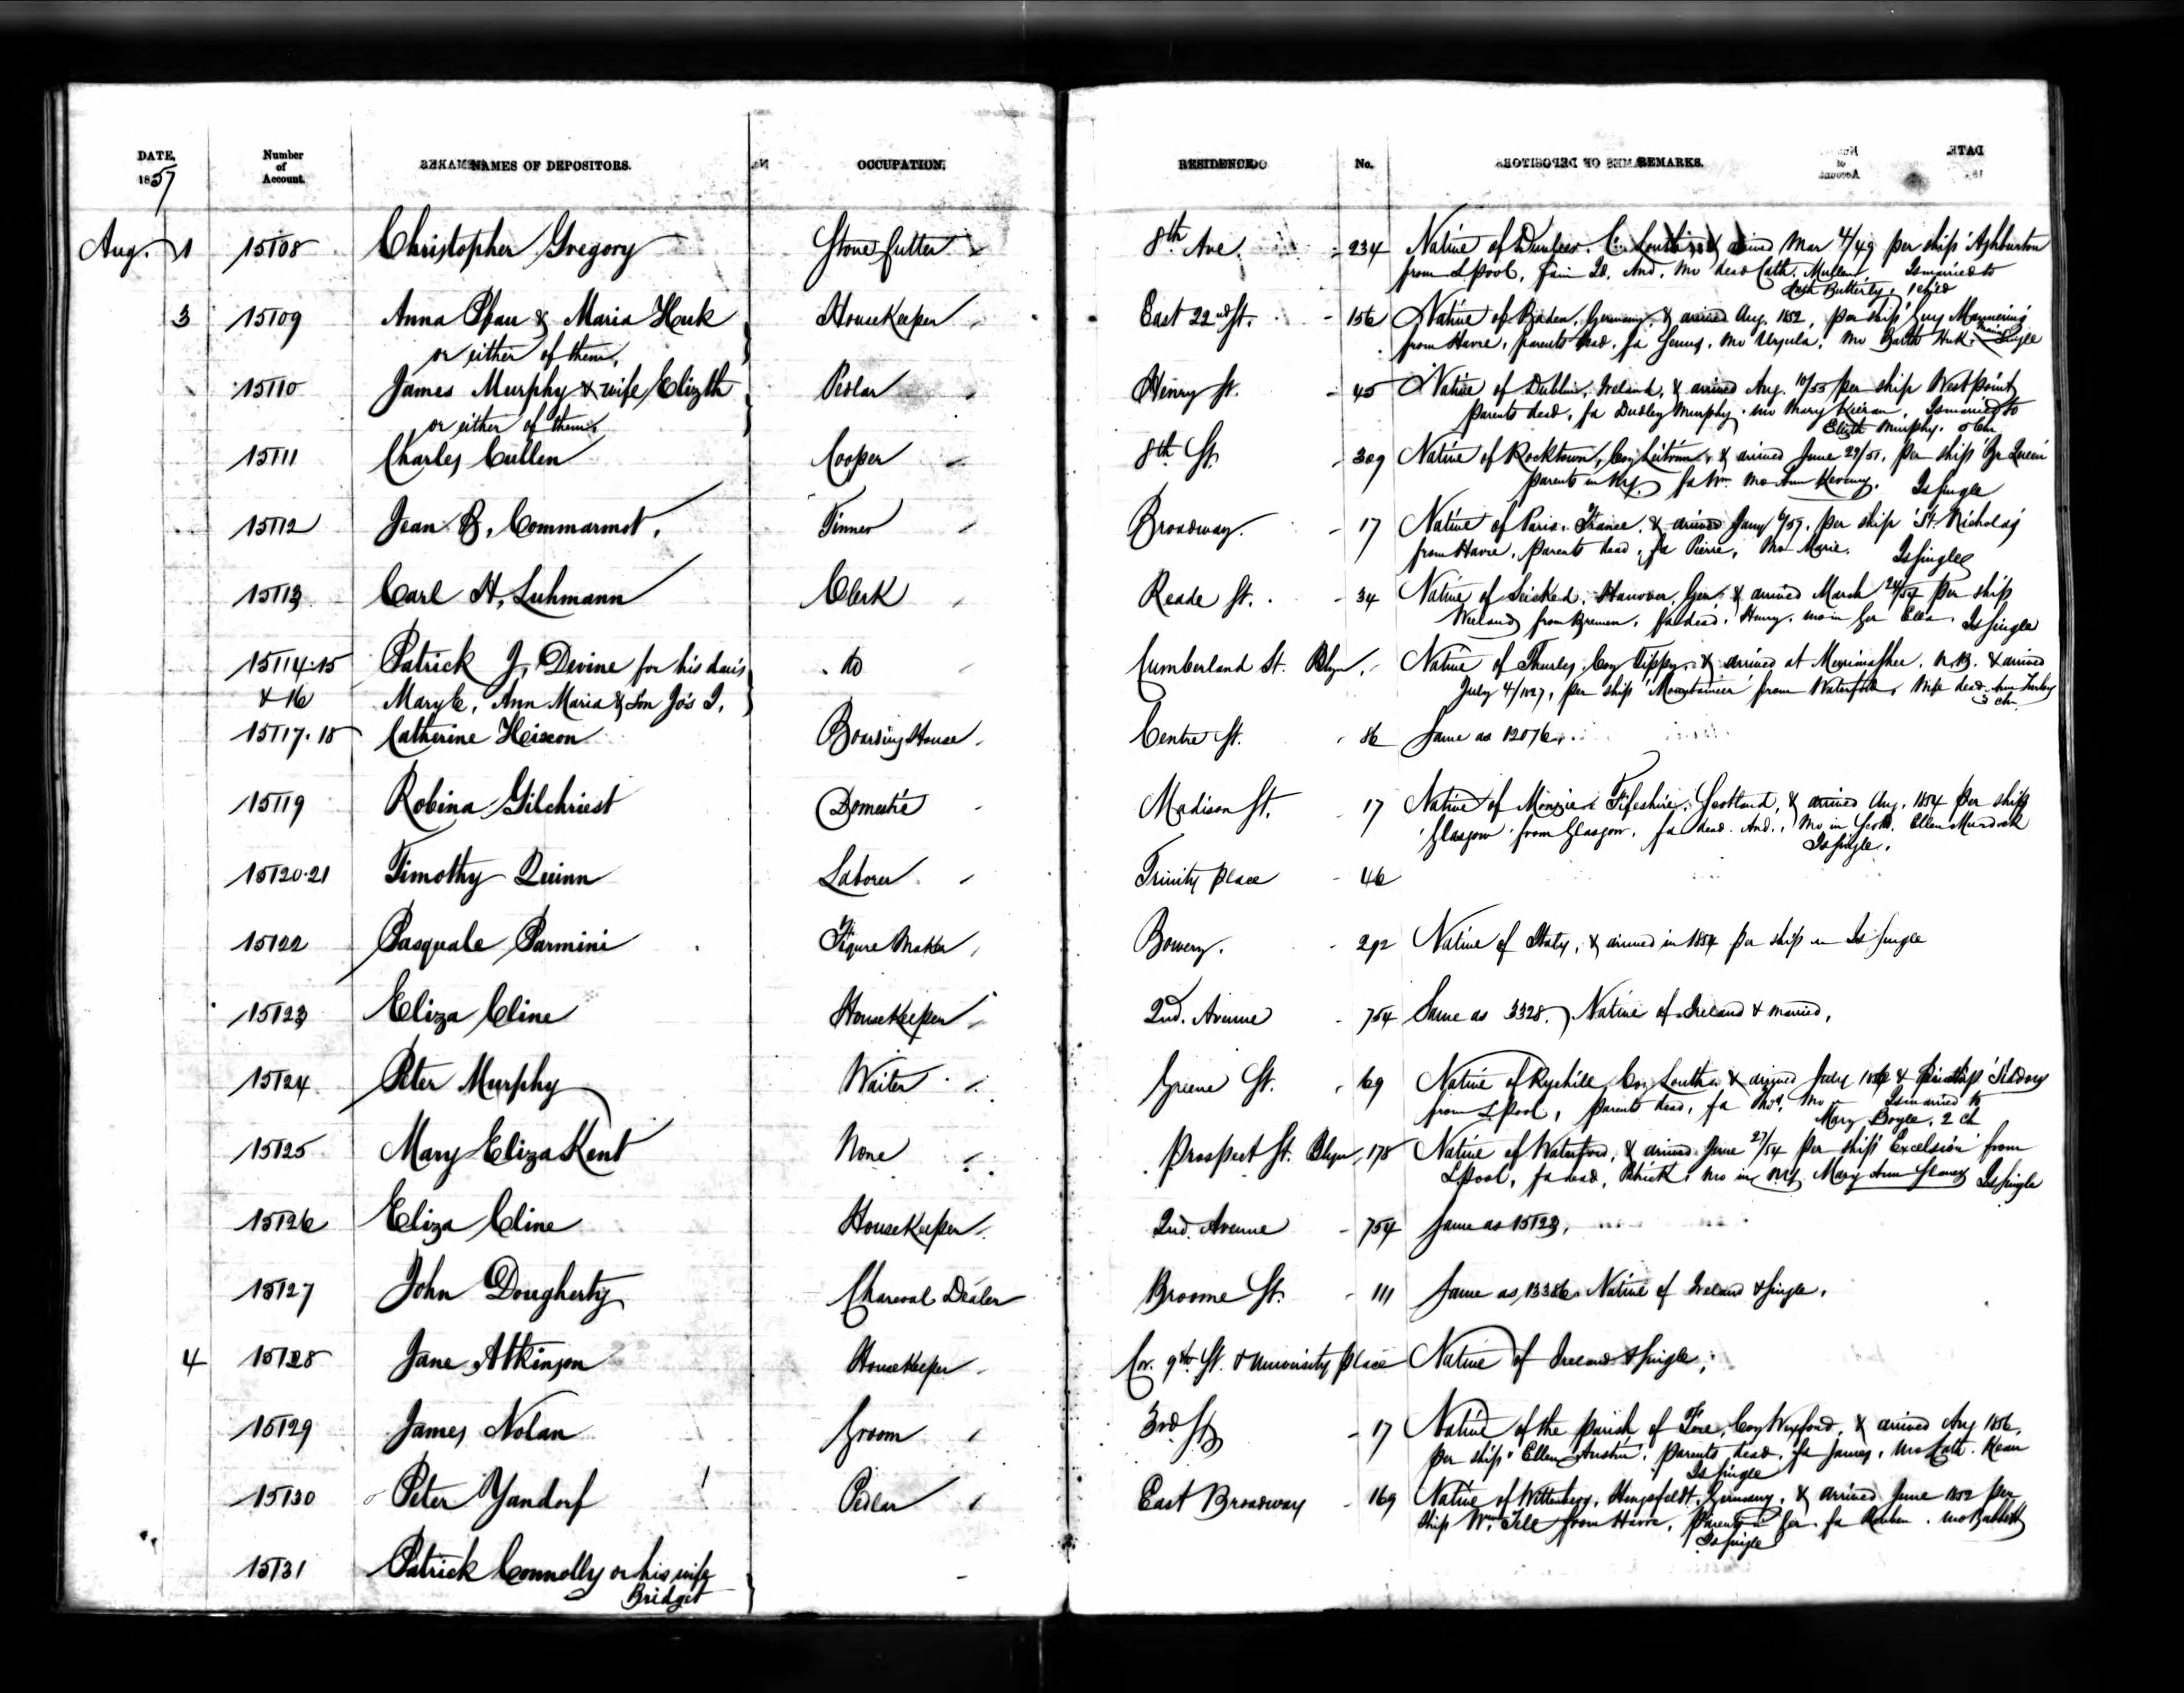 DATE, 1857
Number of Account.
NAMES OF DEPOSITORS.
OCCUPATION.
RESIDENCE.
No.
REMARKS.
Aug. 1 15108 Christopher Gregory Stone Cutter 8th Ave. 234 Native of Dunleer. Co. Louth, & arrived Mar 4/49 per ship 'Ashburton
from L.pool, fa in Id. And, mo dead Cath. Mullen, Is married to
Cath Butterly, 1 child
3 15109 Anna Pfau & Maria Huk HouseKeeper East 22nd St. 156 Native of Baden, Germany, & arrived Aug. 1852, per ship 'Guy Mannering'
or either of them, from Havre, parents dead, fa mo Ursula. Single
15110 James Murphy & wife Elizth Pedlar Henry St. 45 Native of Dublin, Ireland, & arrived Aug. 10/53 per ship West point
or either of them. parents dead, fa Dudley Murphy, mo Mary Kieran, Is married to
Elizth Murphy. o Chn
15111 Charles Cullen Cooper 8th St. 309 Native of Rocktown, Coy Leitrim, & arrived June 29/51, per ship 'Gr Queen'
parents in NY. fa Wm. mo Ann Keveny. Is single
15112 Jean B. Commarmot, Tinner Broadway. 17 Native of Paris. France. & arrived Jany 6/57. per ship 'St. Nicholas'
from Havre, parents dead, fa Pierre, Mo Marie. Is single
15113 Carl H. Luhmann Clerk Reade St. 34 Native of Hanover, Ger. & arrived March 24/54 per ship
from Bremen, fa dead, Henry, mo in Ger Ella. Is single
15114.15 Patrick J, Devine for his dau's do Cumberland St. Blyn, Native of Thurles, Coy Tippy. & arrived at N.B. & arrived
& 16 Mary E, Ann Maria & Son Jo's I, July 4/1827, per ship 'Mountaineer' from Waterford, Wife dead Ann
3 chn.
15117.18 Catherine Hixon Boarding House Centre St. 86 Same as 12076.
15119 Robina Gilchriest Domestic Madison St. 17 Native of Fifeshire, Scotland, & arrived Aug. 1854 per ship
'Glasgow' from Glasgow, fa dead. And., Mo in Scotd. Ellen Murdock
Is single.
15120.21 Timothy Quinn Laborer Trinity place 46
15122 Pasquale Parmini Figure Maker Bowery. 292 Native of Italy, & arrived in 1854 per ship Is single
15123 Eliza Cline HouseKeeper 2nd. Avenue 754 Same as 3328. Native of Ireland & married,
15124 Peter Murphy Waiter Greene St. 69 Native of Ryehill, Coy Louth, & arrived July
from L.pool, parents dead, fa mo Is married to
Mary Boyle, 2 ch
15125 Mary Eliza Kent None Prospect St. Blyn, 178 Native of Waterford, & arrived June 27/54 per ship 'Excelsior' from
L.pool, fa dead, Patrick, mo in NY. Mary Ann Is single
15126 Eliza Cline HouseKeeper 2nd. Avenue 754 Same as 15123,
15127 John Dougherty Charcoal Dealer Broome St. 111 Same as 13386. Native of Ireland & single.
4 15128 Jane Atkinson HouseKeeper Cor. 9th St. & University place Native of Ireland & single,
15129 James Nolan Groom 3rd St 17 Native of the parish of Coy Wexford, & arrived Aug 1856,
per ship 'Ellen Austin', parents dead, fa James, mo Cath. Kean
Is single
15130 Peter Yandorf Pedlar East Broadway 169 Native of Wittenberg, Hengsfeldt, Germany, & arrived June 1852 per
ship Wm. Tell from Havre, parents in Ger. fa Reuben. mo
Is single
15131 Patrick Connolly or his wife
Bridget